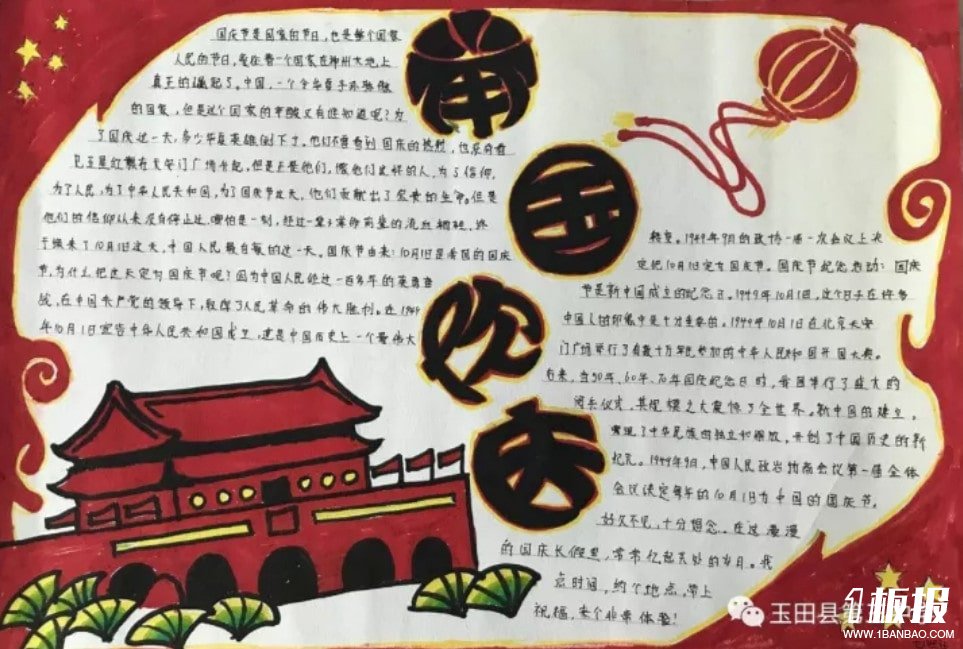 国庆节是国家的节日，也是整个国家
人民的节日，象征着一个国家在神州大地上
真正的崛起了。中国，一个令华夏子孙骄傲
的国家，但是这个国家的辛酸又有谁知道呢？为
了国庆这一天，多少华夏英雄倒下了。他们不曾看到国庆的热烈，也没有看
见五星红旗在天安门广场升起，但是正是他们，像他们这样的人，为了信仰，
为了人民，为了中华人民共和国，为了国庆节这天，他们贡献出了宝贵的生命。但是
他们的信仰从来没有停止过，哪怕是一刻，经过一辈子革命前辈的流血牺牲，终
于换来了10月1日这天，中国人民最自豪的这一天。国庆节由来：10月1日是我国的国庆
节，为什么把这天定为国庆节呢？因为中国人民经过一百多年的英勇奋
战，在中国共产党的领导下，取得了人民革命的伟大胜利。在1949
年10月1日宣告中华人民共和国成立，这是中国历史上一个最伟大
普
天
欢
庆
转变。1949年9月的政协一届一次会议上决
定把10月1日定为国庆节。国庆节纪念活动：国庆
节是新中国成立的纪念日。1949年10月1日，这个日子在许多
中国人的印象中是十分重要的。1949年10月1日在北京天安
门广场举行了有数十万军民参加的中华人民共和国开国大典。
后来，当50年、60年、70年国庆纪念日时，我国举行了盛大的
阅兵仪式，其规模之大震惊了全世界。新中国的建立，
实现了中华民族的独立和解放，开创了中国历史的新
纪元。1949年9月，中国人民政治协商会议第一届全体
会议决定每年的10月1日为中国的国庆节。
好久不见，十分想念。在这漫漫
的国庆长假里，常常忆起美好的岁月。找
点时间，约个地点，带上
祝福，来个非常体验！
玉田县第
1板报
WWW.1BANBAO.COM